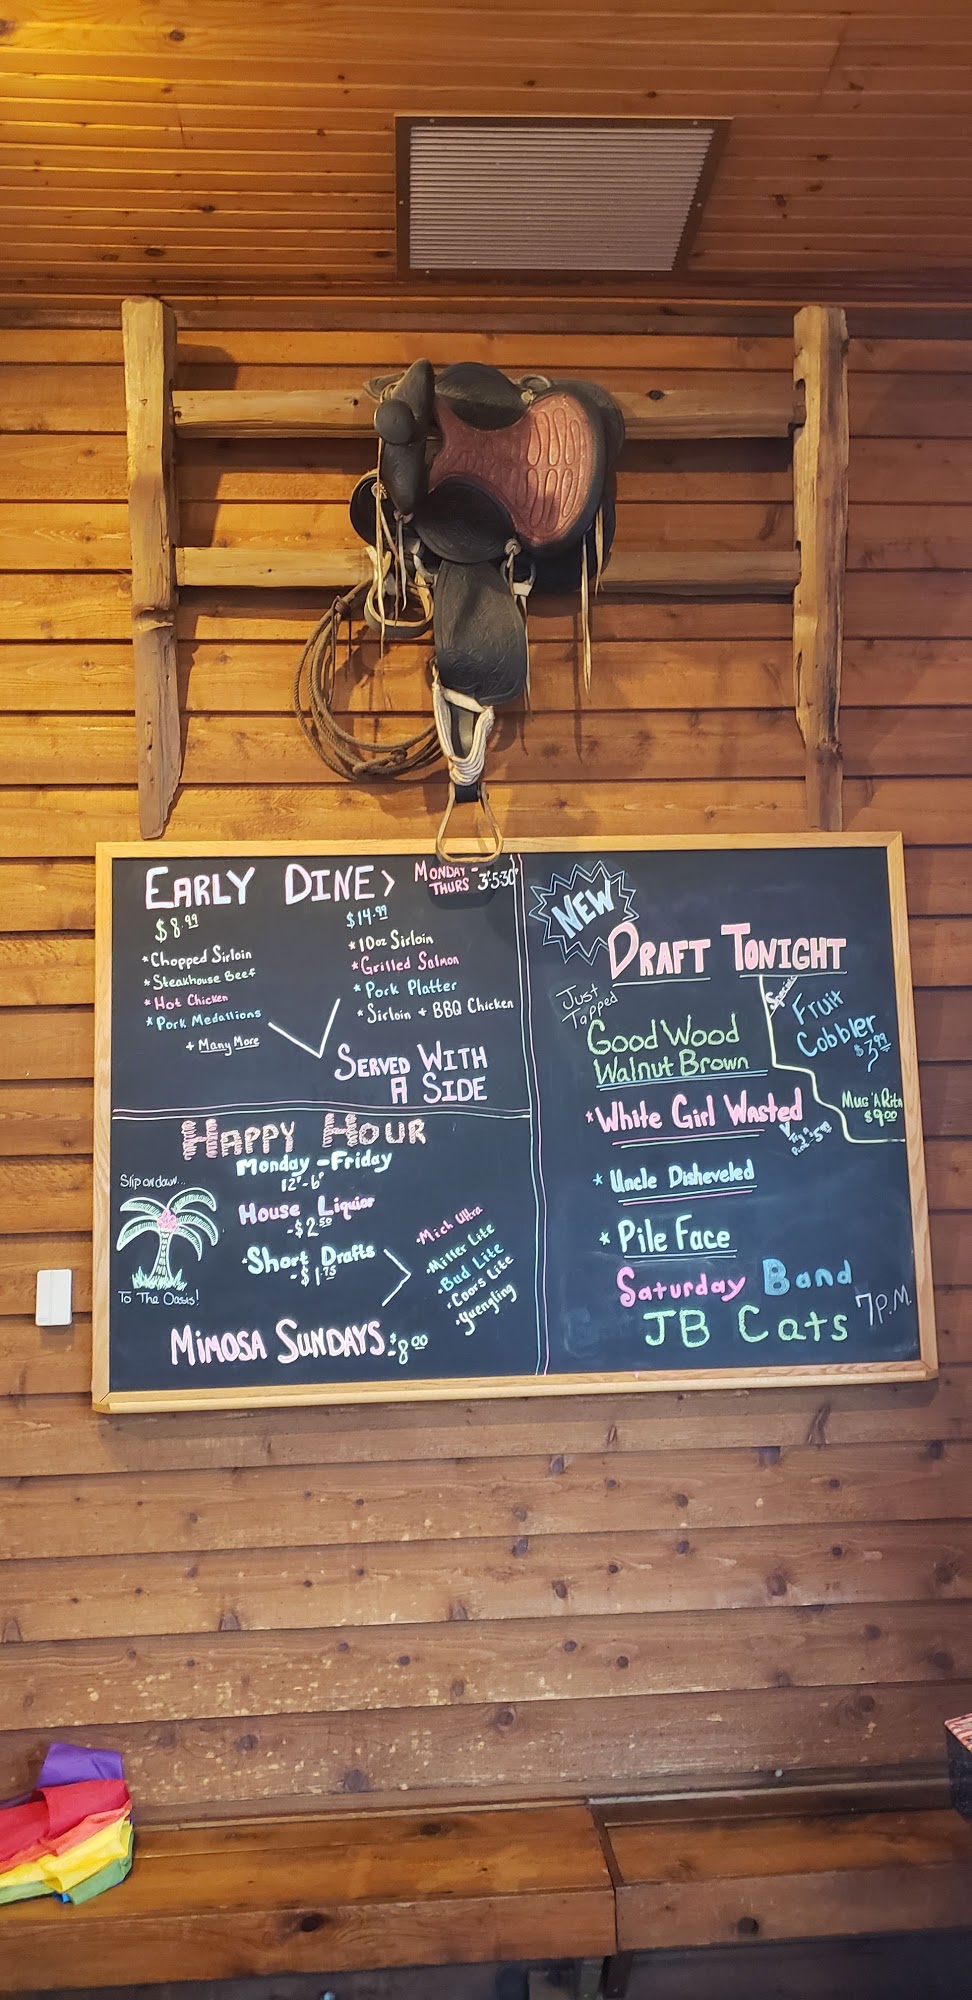 EARLY DINE > MONDAY -
THURS 3-5:30
$8.99
*Chopped Sirloin
*Steakhouse Beef
*Hot Chicken
*Pork Medallions
+ Many More
$14.99
*10oz Sirloin
*Grilled Salmon
*Pork Platter
*Sirloin + BBQ Chicken
SERVED WITH
A SIDE
HAPPY HOUR
Monday - Friday
Slip on down...
To The Oasis!
House Liquior
- $2.50
Short Drafts
- $1.75
Mich Ultra
Miller Lite
Bud Lite
Coors Lite
Yuengling
MIMOSA SUNDAYS - $8.00
NEW
DRAFT TONIGHT
Just
Tapped
Good Wood
Walnut Brown
*White Girl Wasted
*Uncle Disheveled
*Pile Face
Specials
Fruit
Cobbler
$3.99
MUG'A Rita
$9.00
Saturday Band
JB Cats 7P.M.